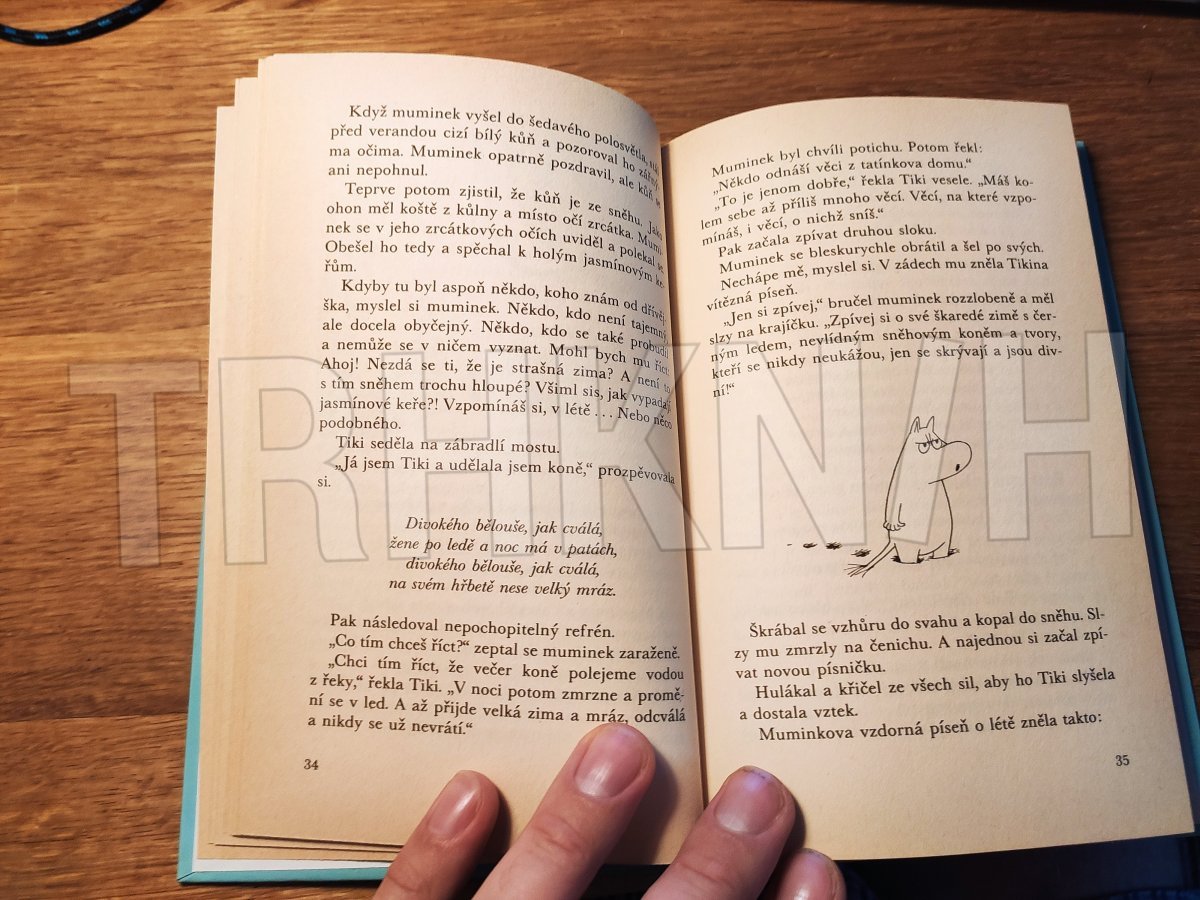 Když muminek vyšel do šedavého polosvětla, stál
před verandou cizí bílý kůň a pozoroval ho zářivý-
ma očima. Muminek opatrně pozdravil, ale kůň se
ani nepohnul.
Teprve potom zjistil, že kůň je ze sněhu. Jako
ohon měl koště z kůlny a místo očí zrcátka. Mumi-
nek se v jeho zrcátkových očích uviděl a polekal se.
Obešel ho tedy a spěchal k holým jasmínovým ke-
řům.
Kdyby tu byl aspoň někdo, koho znám od dřívej-
ška, myslel si muminek. Někdo, kdo není tajemný,
ale docela obyčejný. Někdo, kdo se také probudil
a nemůže se v ničem vyznat. Mohl bych mu říct:
Ahoj! Nezdá se ti, že je strašná zima? A není to
s tím sněhem trochu hloupé? Všiml sis, jak vypadají
jasmínové keře?! Vzpomínáš si, v létě . . . Nebo něco
podobného.
Tiki seděla na zábradlí mostu.
„Já jsem Tiki a udělala jsem koně,“ prozpěvovala
si.
Divokého bělouše, jak cválá,
žene po ledě a noc má v patách,
divokého bělouše, jak cválá,
na svém hřbetě nese velký mráz.
Pak následoval nepochopitelný refrén.
„Co tím chceš říct?“ zeptal se muminek zaraženě.
„Chci tím říct, že večer koně polejeme vodou
z řeky,“ řekla Tiki. „V noci potom zmrzne a promě-
ní se v led. A až přijde velká zima a mráz, odcválá
a nikdy se už nevrátí.“
34
Muminek byl chvíli potichu. Potom řekl:
„Někdo odnáší věci z tatínkova domu.“
„To je jenom dobře,“ řekla Tiki vesele. „Máš ko-
lem sebe až příliš mnoho věcí. Věcí, na které vzpo-
mínáš, i věcí, o nichž sníš.“
Pak začala zpívat druhou sloku.
Muminek se bleskurychle obrátil a šel po svých.
Nechápe mě, myslel si. V zádech mu zněla Tikina
vítězná píseň.
„Jen si zpívej,“ bručel muminek rozzlobeně a měl
slzy na krajíčku. „Zpívej si o své škaredé zimě s čer-
ným ledem, nevlídným sněhovým koněm a tvory,
kteří se nikdy neukážou, jen se skrývají a jsou div-
ní!“
Škrábal se vzhůru do svahu a kopal do sněhu. Sl-
zy mu zmrzly na čenichu. A najednou si začal zpí-
vat novou písničku.
Hulákal a křičel ze všech sil, aby ho Tiki slyšela
a dostala vztek.
Muminkova vzdorná píseň o létě zněla takto:
35
TRHKNIH